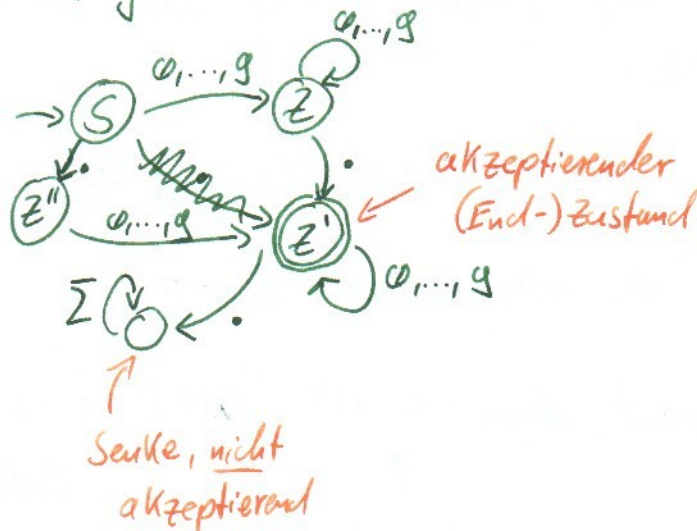 0,...,9
0,...,9
S
Z
.
.
akzeptierender
(End-)Zustand
Z''
0,...,9
Z'
0,...,9
Σ
.
Senke, nicht
akzeptierend